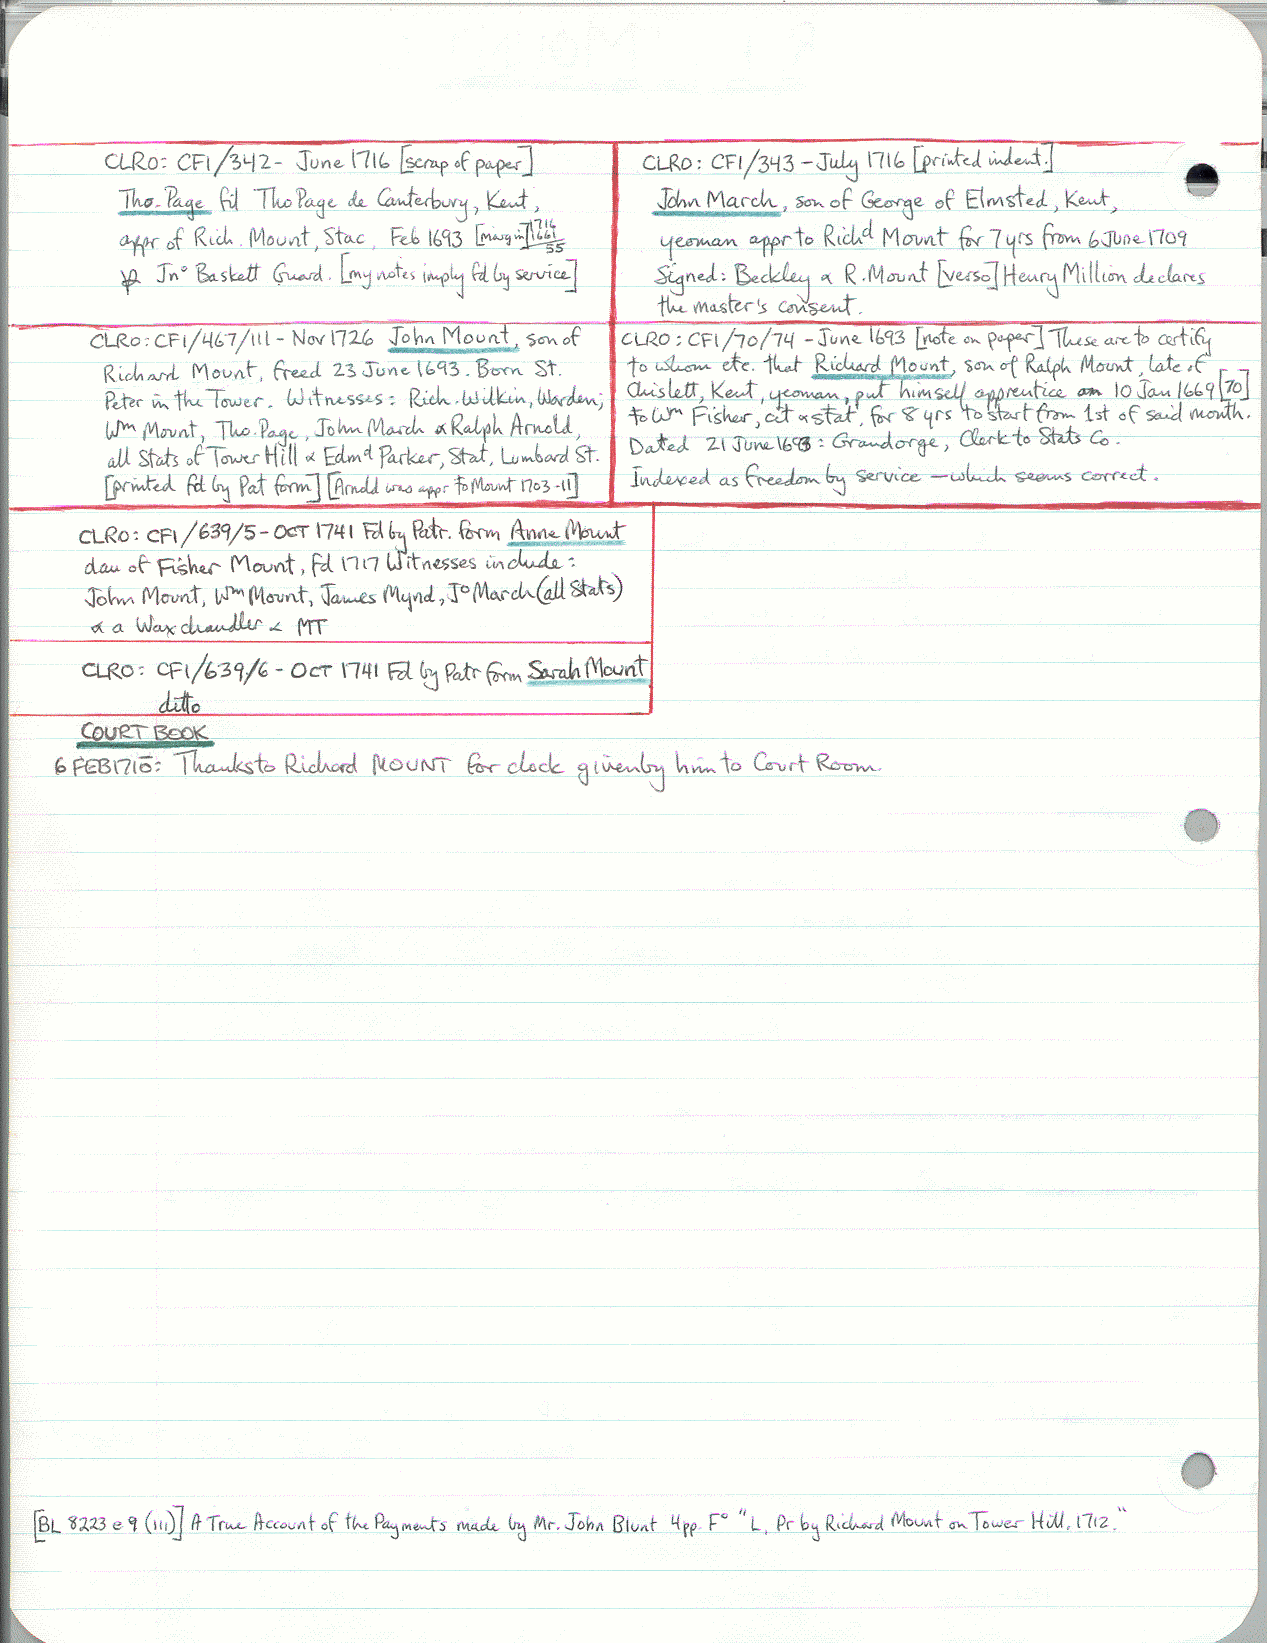 CLRO: CF1/342 - June 1716 [scrap of paper]
Tho. Page fil Tho Page de Canterbury, Kent,
appr of Rich. Mount, Stac, Feb 1693 [margin] 1716
1661
55
Jno Baskett Guard. [my notes imply fd by service]
CLRO: CF1/343 - July 1716 [printed indent.]
John March, son of George of Elmsted, Kent,
yeoman appr to Richd Mount for 7 yrs from 6 June 1709
Signed: Beckley & R. Mount [verso] Henry Million declares
the master's consent.
CLRO: CF1/467/111 - Nov 1726 John Mount, son of
Richard Mount, freed 23 June 1693. Born St.
Peter in the Tower. Witnesses: Rich. Wilkin, Warden;
Wm Mount, Tho. Page, John March & Ralph Arnold,
all Stats of Tower Hill & Edmd Parker, Stat, Lumbard St.
[printed fd by Pat form] [Arnold was appr to Mount 1703-11]
CLRO: CF1/70/74 - June 1693 [note on paper] These are to certify
to whom etc. that Richard Mount, son of Ralph Mount, late of
Chislett, Kent, yeoman, put himself apprentice on 10 Jan 1669 [70]
to Wm Fisher, cit & stat, for 8 yrs to start from 1st of said month.
Dated 21 June 1693: Grandorge, Clerk to Stats Co.
Indexed as freedom by service - which seems correct.
CLRO: CF1/639/5 - Oct 1741 Fd by Patr. form Anne Mount
dau of Fisher Mount, fd 1717 Witnesses include:
John Mount, Wm Mount, James Mynd, Jo March (all Stats)
& a Wax chandler & MT
CLRO: CF1/639/6 - Oct 1741 Fd by Patr form Sarah Mount
ditto
COURT BOOK
6 FEB 1710: Thanks to Richard MOUNT for clock given by him to Court Room.
[BL 8223 e 9 (111)] A True Account of the Payments made by Mr. John Blunt 4pp. Fo "L, Pr by Richard Mount on Tower Hill, 1712."